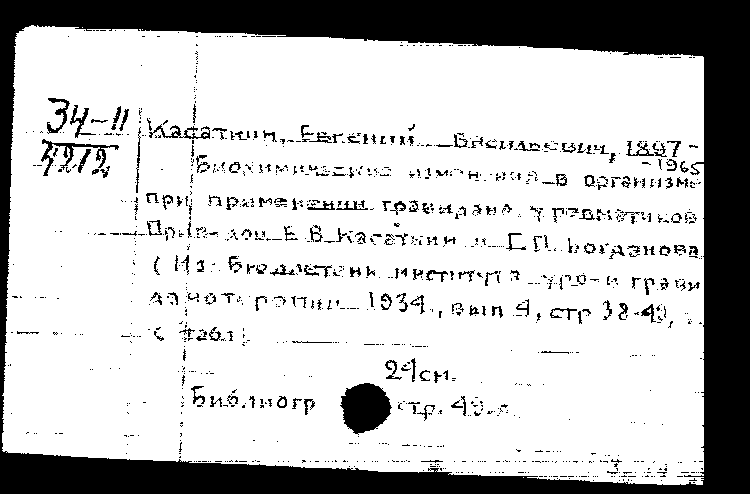 34-11
4212
Касаткин, Евгений Васильевич, 1897-
-1965
Биохимические изменения в организме
при применении гравидана у ревматиков
Прив-доц Е.В. Касаткин и Г.П. Богданова
(Из Бюллетени института уро- и грави
данотерапии 1934., вып 4, стр 38-49,
с табл)
24 см.
Библиогр стр. 49-я